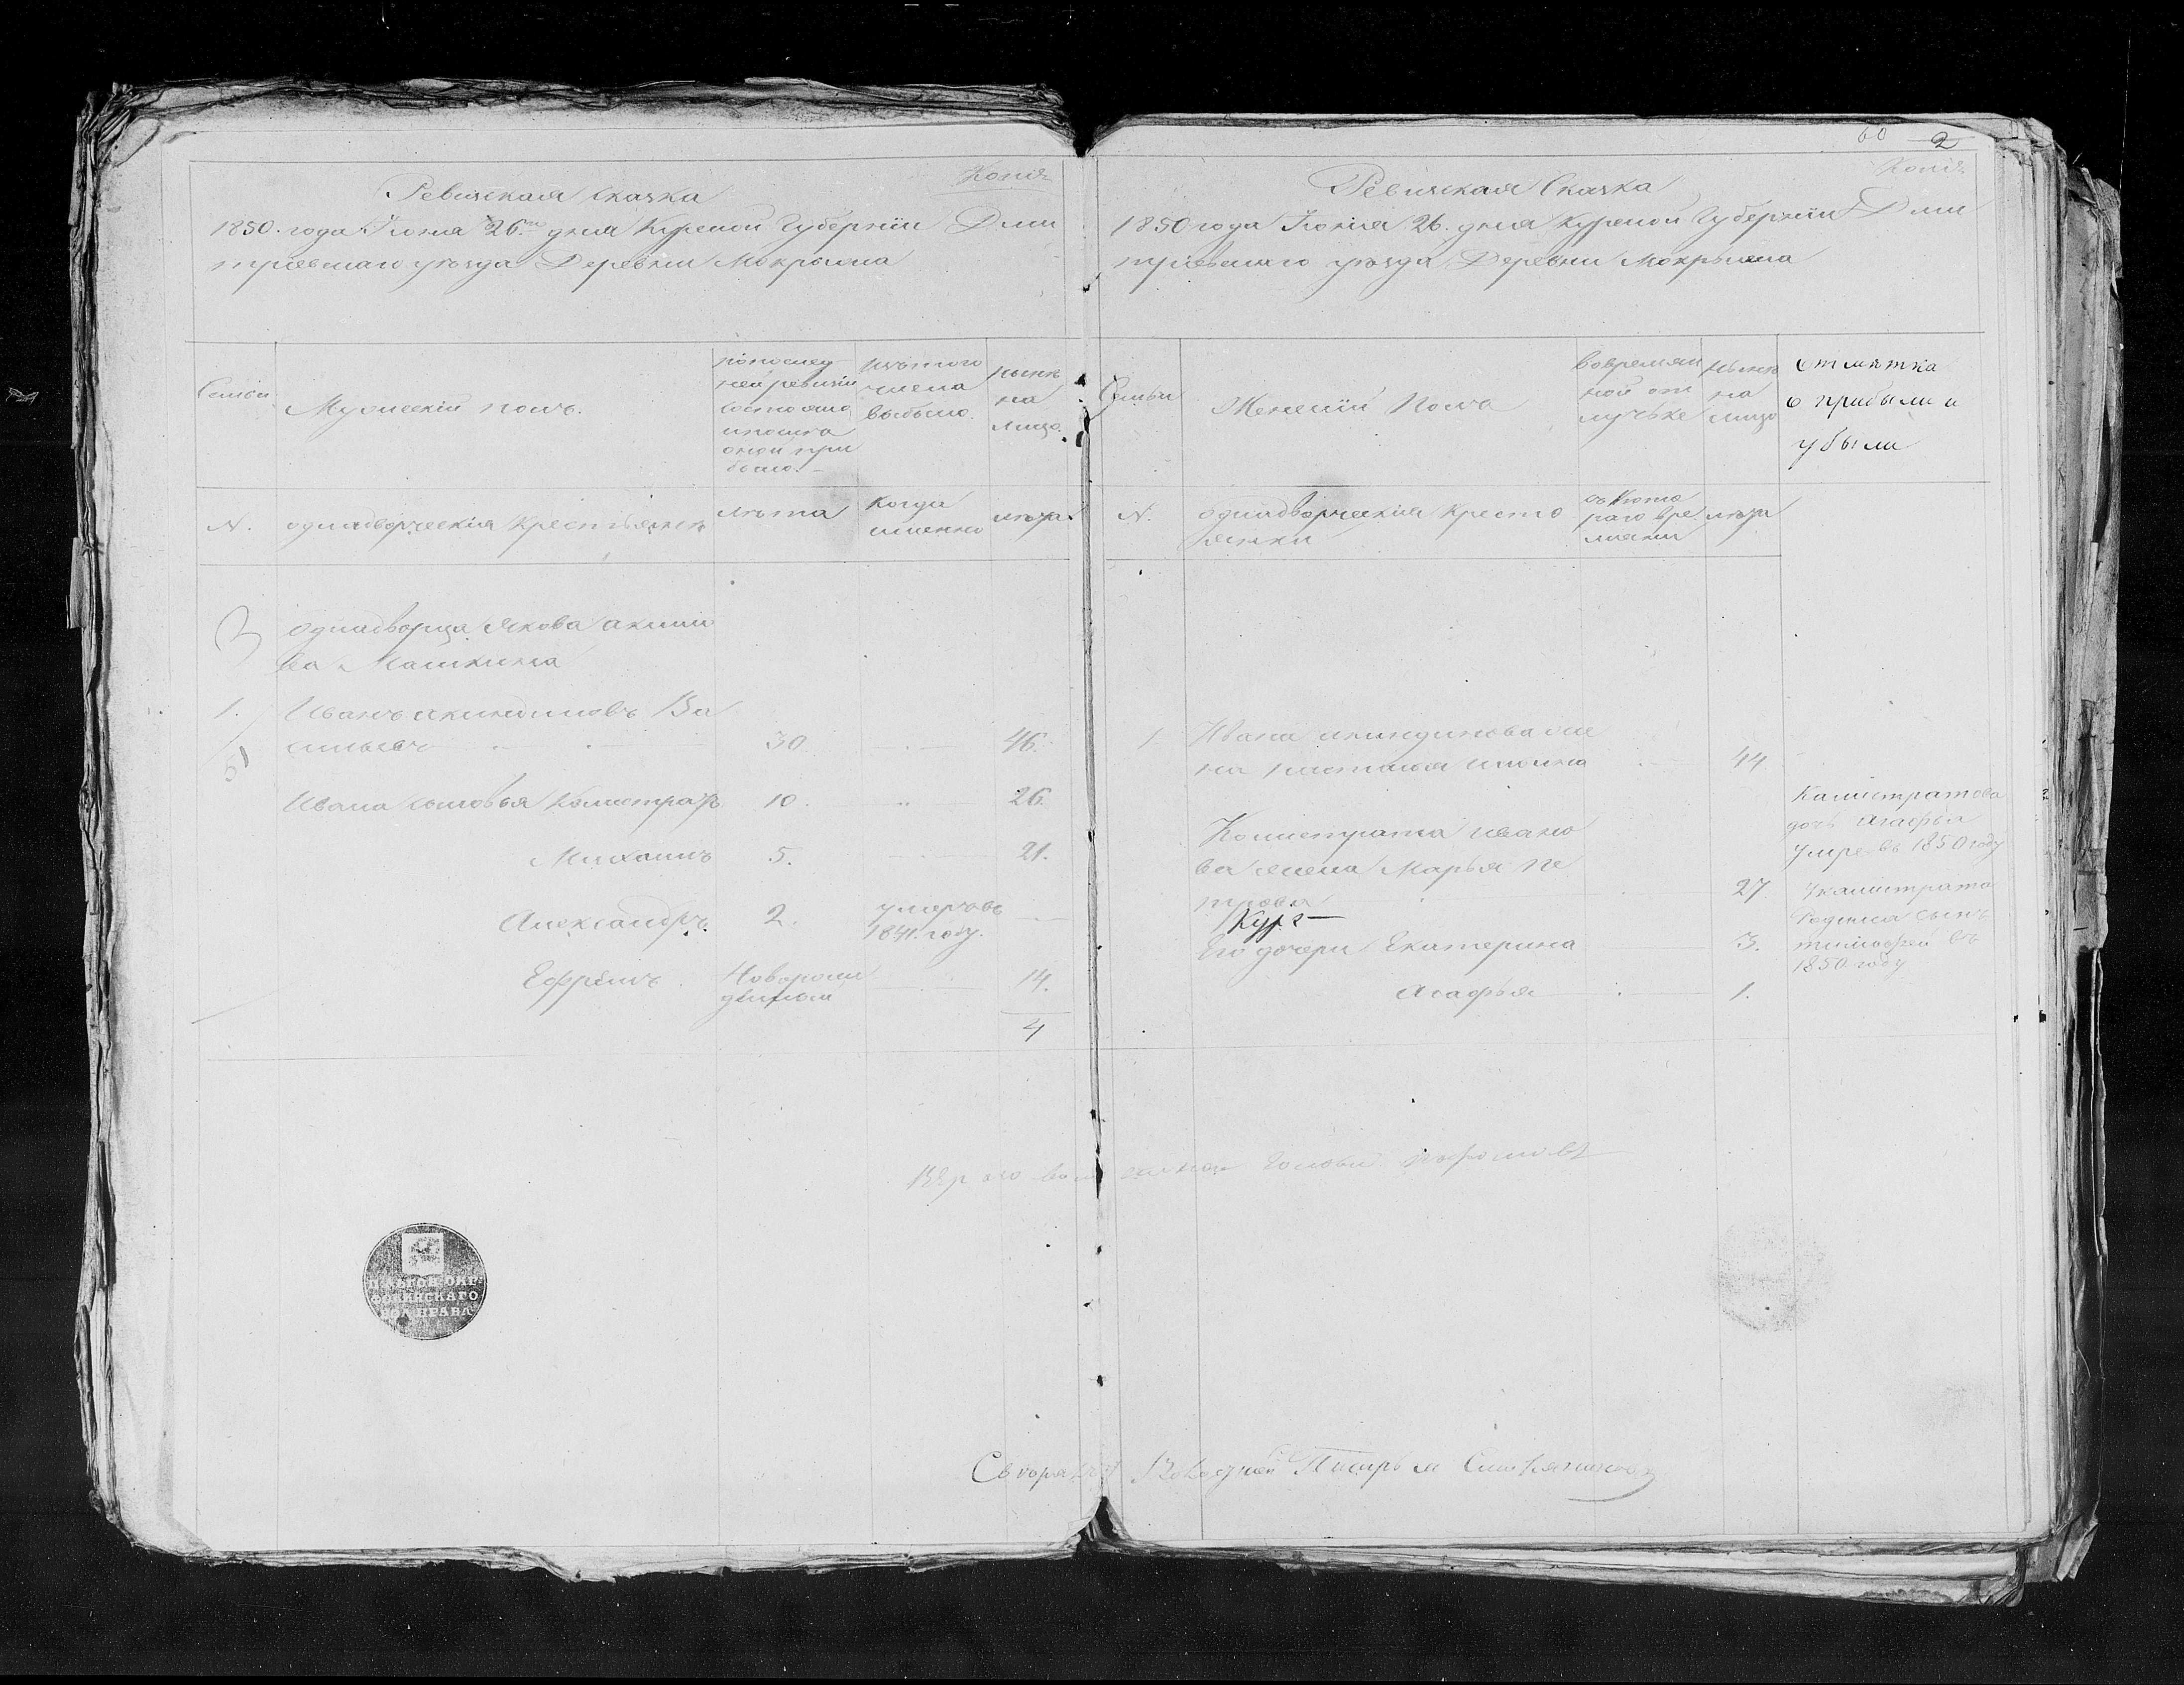 Копія
Ревизская Сказка
1850. года Іюня 26.го дня Курской Губерніи Дми
тріевскаго уезда Деревни Мокрыжа
Семьи
Мужескій полъ.
попослед
ней ревизіи
состояло
ипосля
оной при
было.
Изътого
числа
выбыло.
Нынѣ
на
лицо.
N.
однадворческія Крестьянѣ
лѣта
Когда
именно
лѣта.
3
однадворца Якова акими
ва Машкина
1.
Иванъ акиндиновъ Ва
сильевъ 30 46.
51
Ивана сыновья Калистратъ 10. 26.
Михаилъ 5. 21.
Александръ. 2. умеръвъ
1841. году.
Ефремъ. Новорож
денный 14.
4
60 2
Копія
Ревизская Сказка
1850 года Іюня 26. дня Курской Губерніи Дми
тріевскаго уезда Деревни Мокрыжа
Семьи
Женскій Полъ
вовремян
ной от
лучьке
Нынѣ
на
лицо
Отмѣтка
о прибыли и
убыли
N.
однадворческія Кресто
янки
съ Кото
раго вре
мяни
лѣта
1
Ивана акиндинова же
на настасья ильина 44
Калистрата ивано
ва жена Марья пе
трова 27
Курс
Его дочери Екатерина 3.
Агафья 1.
Калистратова
дочь Агафья
умре въ 1850 году
У калистрата
родился сынъ
тимофей въ
1850 году
ЛЬГОВ: ОКР:
ФОКИНСКАГО
ВОЛ. ПРАВЛ.
Голова
Писарь